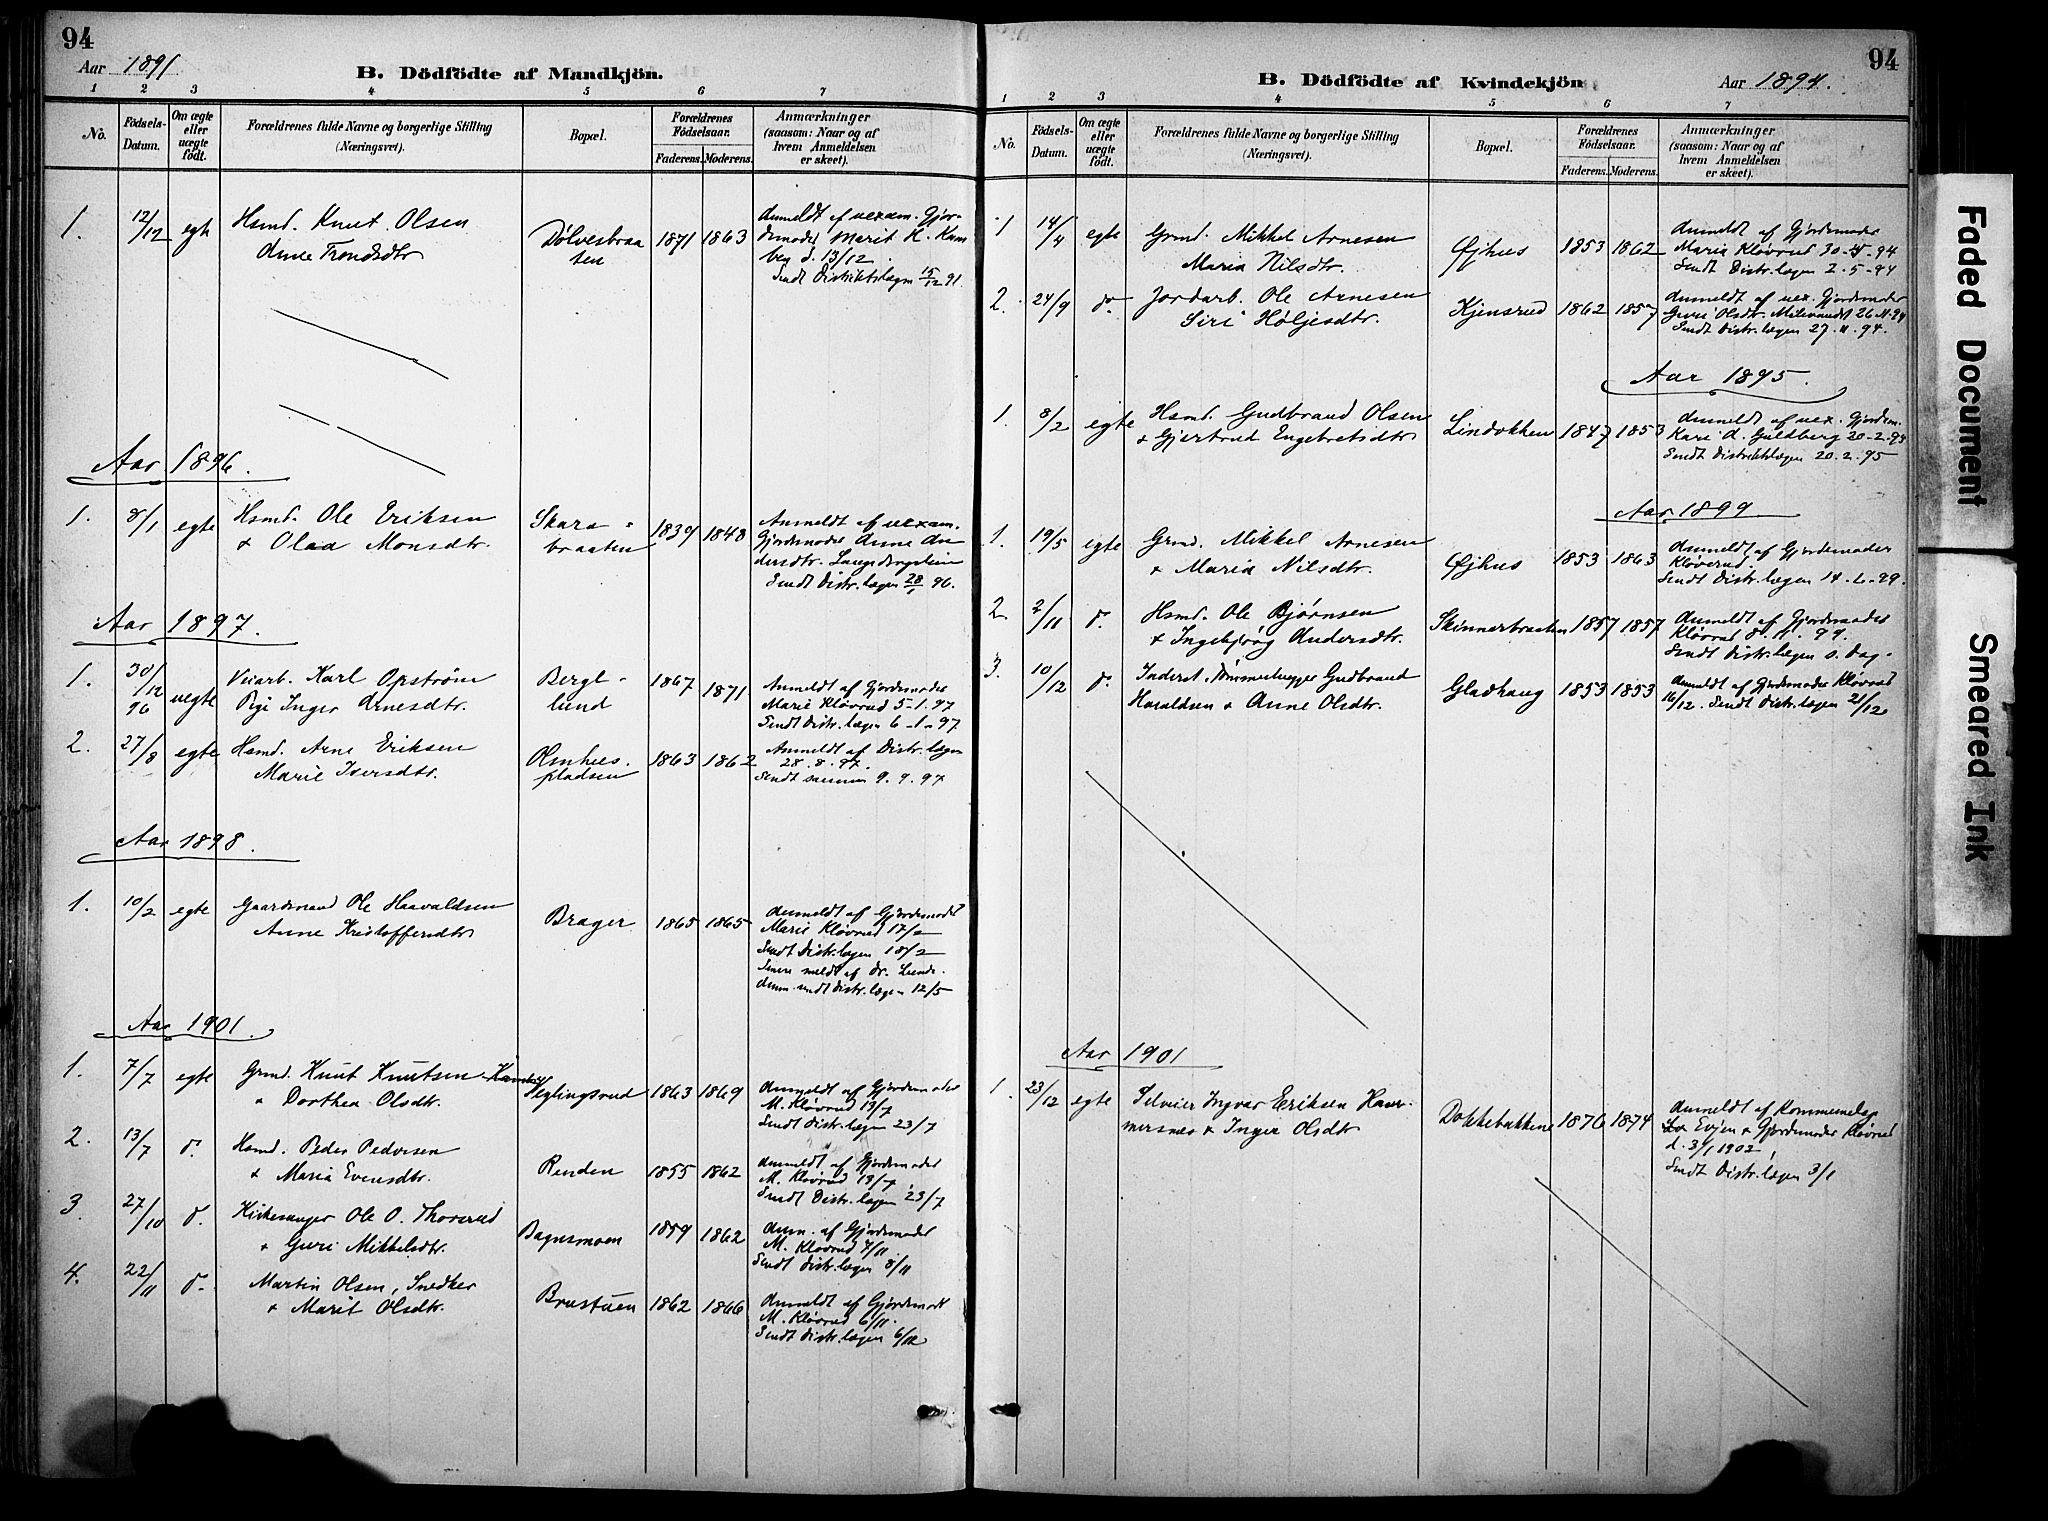 94
Aar 1891
B. Dödfödte af Mandkjön.
1 2 3 4 5 6 7
No.
Födsels-Datum.
Om ægte eller uægte födt.
Forældrenes fulde Navne og borgerlige Stilling (Næringsvei).
Bopæl.
Forældrenes Födselsaar.
Faderens. Moderens.
Anmærkninger (saasom: Naar og af hvem Anmeldelsen er skeet).
1. 12/12 egte Hsmd. Knut Olsen
Anne Trondsdtr
Dølvesbraaten 1871 1863
Anmeldt af uexam. Gjordemoder Marit K.
d. 13/12
Sendt Distriktslægen 15/12 91
Aar 1896.
1. 8/1 egte Hsmd. Ole Eriksen
& Olea Monsdtr.
Skarabraaten 1839 1848
Anmeldt af uexam.
Gjordemoder Anne Andersdtr.
Sendt Distr.lægen 28/1 96.
Aar 1897.
1. 30/12 96 uegte Veiarb. Karl Opstrøm
Pige Inger Arnesdtr.
Berglund 1867 1871
Anmeldt af Gjordemoder
Marie Kløvrud 5-1-97
Sendt Distr.lægen 6-1-97
2. 27/8 egte Hsmd. Arne Eriksen
Marie Iversdtr.
Olmhuspladsen 1863 1862
Anmeldt af Distr.lægen
28.8.97.
Sendt samme 9.9.97
Aar 1898.
1. 10/2 egte Gaardmand Ole Haavaldsen
Anne Kristoffersdtr
Brager 1865 1865
Anmeldt af Gjordemoder
Marie Kløvrud 17/2
Sendt Distr.lægen 18/2
Senere meldt af Dr. Lunde.
Anm. sendt Distr.lægen 12/5
Aar 1901.
1. 7/7 egte Grmd. Knut Knutsen
& Dorthea Olsdtr.
Heglingsrud 1863 1869
Anmeldt af Gjordemoder
M. Kløvrud 13/7
Sendt Distr.lægen 23/7
2. 13/7 d. Hsmd. Peder Pedersen
& Maria Evensdtr.
Renden 1855 1862
Anmeldt af Gjordemoder
M. Kløvrud 13/7
Sendt Distr.lægen 23/7
3. 27/10 d. Kirkesanger Ole O. Thorsrud
& Guri Mikkelsdtr.
Bagnsmoen 1859 1862
Anm. af Gjordemoder
M. Kløvrud 7/11
Sendt Distr.lægen 8/11
4. 22/11 d. Martin Olsen, Snedker
& Marit Olsdtr.
Brustuen 1862 1866
Anmeldt af Gjordemoder
M. Kløvrud 6/11.
Sendt Distr.lægen 6/12
94
Aar 1894.
B. Dödfödte af Kvindekjön
1 2 3 4 5 6 7
No.
Födsels-Datum.
Om ægte eller uægte födt.
Forældrenes fulde Navne og borgerlige Stilling (Næringsvei).
Bopæl.
Forældrenes Födselsaar.
Faderens. Moderens.
Anmærkninger (saasom: Naar og af hvem Anmeldelsen er skeet).
1 14/4 egte Grmd. Mikkel Arnesen
Maria Nilsdtr.
Øjhus 1853 1862
Anmeldt af Gjordemoder
Maria Kløvrud 30-4-94
Sendt Distr.lægen 2-5-94
2. 24/9 d. Jordarb. Ole Arnesen
Siri Holjesdtr.
Kjensrud 1862 1857
Anmeldt af uex. Gjordemoder
Guri Olsdtr. 26.11.94
Sendt Distr.lægen 27.11.94.
Aar 1895.
1. 8/2 egte Hsmd. Gudbrand Olsen
& Gjertrud Engebretsdtr
Lindokken 1847 1853
Anmeldt af uex. Gjordem.
Kari A. Guldberg 20-2-95
Sendt Distriktslægen 20.2.95
Aar 1899
1. 19/5 egte Grmd. Mikkel Arnesen
& Maria Nilsdtr.
Øjhus 1853 1863
Anmeldt af Gjordemoder
Kløverud.
Sendt Distr.lægen 14-6-99.
2. 2/11 d. Hsmd. Ole Bjørnsen
& Ingebjørg Andersdtr.
Skinnarbraaten 1857 1857
Anmeldt af Gjordemoder
Kløvrud 8.11.99.
Sendt Distr.lægen s. Dag.
3. 10/12 d. Inderst. Tømmerhugger Gudbrand
Haraldsen & Anne Olsdtr.
Gladhaug 1853 1853
Anmeldt af Gjordemoder Kløvrud
16/12. Sendt Distr.lægen 21/12
Aar 1901
1. 23/12 egte Selveier Ingvar Eriksen Hammersnes
& Inger Olsdtr
Dokkebakkene 1876 1874
Anmeldt af
Evjen & Gjordemoder Kløvrud
d. 3/1 1902
Sendt Distr.lægen 3/1
Faded Document
Smeared Ink